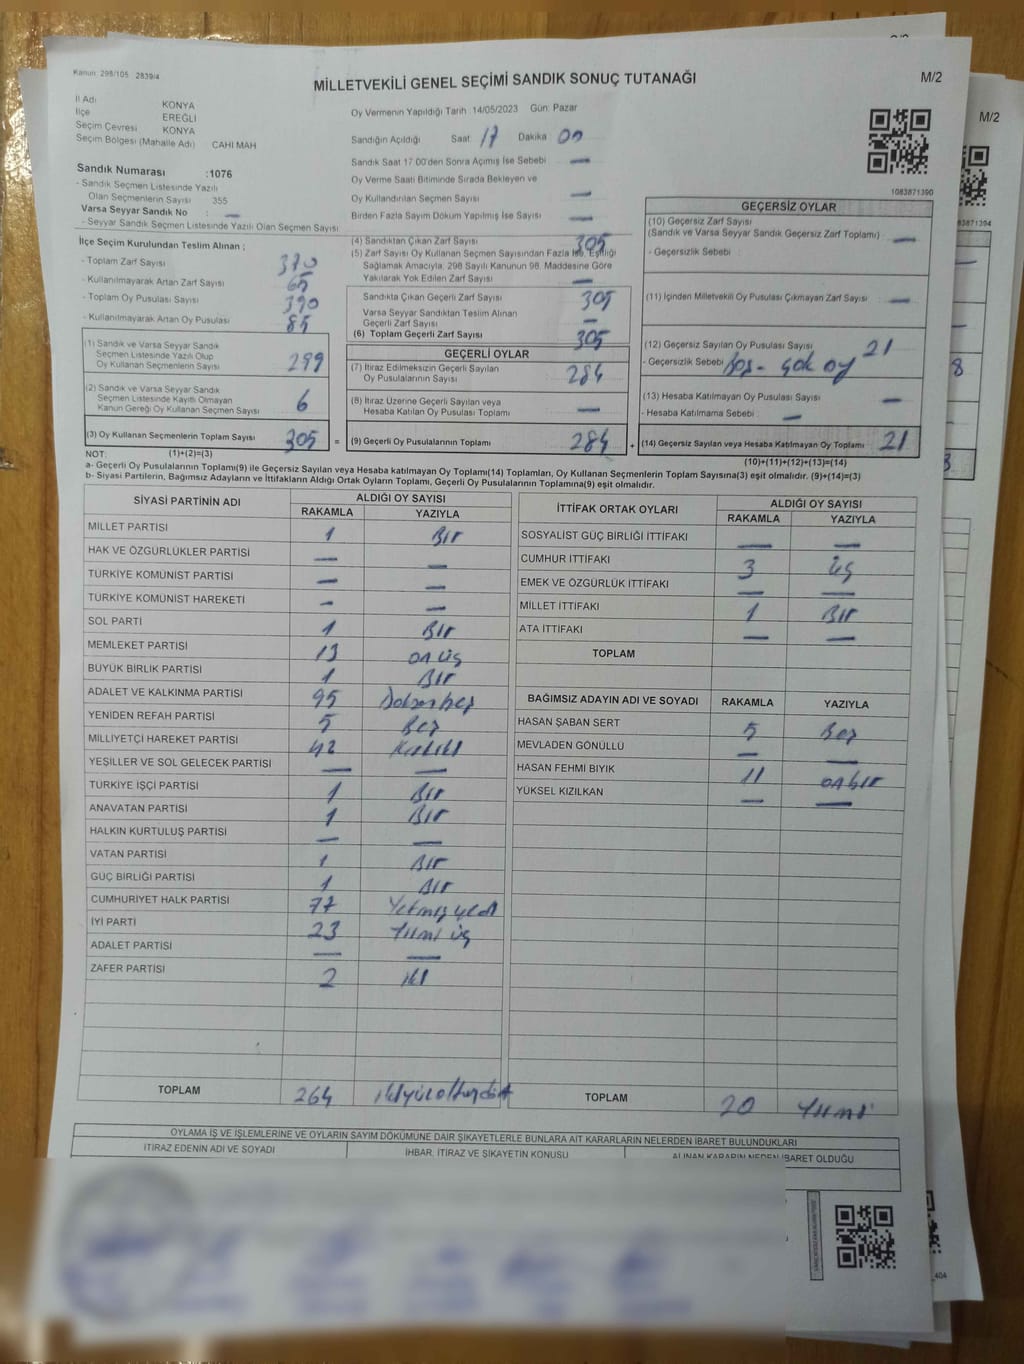 Kanun: 298/105 2839/4
MİLLETVEKİLİ GENEL SEÇİMİ SANDIK SONUÇ TUTANAĞI
M/2
İl Adı KONYA
İlçe EREĞLİ
Seçim Çevresi KONYA
Seçim Bölgesi (Mahalle Adı) CAHI MAH
Oy Vermenin Yapıldığı Tarih 14/05/2023 Gün: Pazar
Sandığın Açıldığı Saat 17 Dakika 00
Sandık Saat 17:00'den Sonra Açılmış İse Sebebi —
Oy Verme Saati Bitiminde Sırada Bekleyen ve
Oy Kullandırılan Seçmen Sayısı —
Birden Fazla Sayım Döküm Yapılmış İse Sayısı —
1083871390
Sandık Numarası :1076
- Sandık Seçmen Listesinde Yazılı
Olan Seçmenlerin Sayısı 355
Varsa Seyyar Sandık No : —
- Seyyar Sandık Seçmen Listesinde Yazılı Olan Seçmen Sayısı
İlçe Seçim Kurulundan Teslim Alınan ;
- Toplam Zarf Sayısı 370
- Kullanılmayarak Artan Zarf Sayısı 65
- Toplam Oy Pusulası Sayısı 390
- Kullanılmayarak Artan Oy Pusulası 85
(1) Sandık ve Varsa Seyyar Sandık
Seçmen Listesinde Yazılı Olup
Oy Kullanan Seçmenlerin Sayısı 299
(2) Sandık ve Varsa Seyyar Sandık
Seçmen Listesinde Kayıtlı Olmayan
Kanun Gereği Oy Kullanan Seçmen Sayısı 6
(3) Oy Kullanan Seçmenlerin Toplam Sayısı 305 =
(4) Sandıktan Çıkan Zarf Sayısı 305
(5) Zarf Sayısı Oy Kullanan Seçmen Sayısından Fazla İse, Eşitliği
Sağlamak Amacıyla, 298 Sayılı Kanunun 98. Maddesine Göre
Yakılarak Yok Edilen Zarf Sayısı —
Sandıkta Çıkan Geçerli Zarf Sayısı 305
Varsa Seyyar Sandıktan Teslim Alınan
Geçerli Zarf Sayısı —
(6) Toplam Geçerli Zarf Sayısı 305
GEÇERLİ OYLAR
(7) İtiraz Edilmeksizin Geçerli Sayılan
Oy Pusulalarının Sayısı 284
(8) İtiraz Üzerine Geçerli Sayılan veya
Hesaba Katılan Oy Pusulası Toplamı —
(9) Geçerli Oy Pusulalarının Toplamı 284 +
GEÇERSİZ OYLAR
(10) Geçersiz Zarf Sayısı
(Sandık ve Varsa Seyyar Sandık Geçersiz Zarf Toplamı) —
- Geçersizlik Sebebi :
(11) İçinden Milletvekili Oy Pusulası Çıkmayan Zarf Sayısı —
(12) Geçersiz Sayılan Oy Pusulası Sayısı 21
- Geçersizlik Sebebi : Boş - çok oy
(13) Hesaba Katılmayan Oy Pusulası Sayısı —
- Hesaba Katılmama Sebebi : —
(14) Geçersiz Sayılan veya Hesaba Katılmayan Oy Toplamı 21
NOT: (1)+(2)=(3)
(10)+(11)+(12)+(13)=(14)
a- Geçerli Oy Pusulalarının Toplamı(9) ile Geçersiz Sayılan veya Hesaba katılmayan Oy Toplamı(14) Toplamları, Oy Kullanan Seçmenlerin Toplam Sayısına(3) eşit olmalıdır. (9)+(14)=(3)
b- Siyasi Partilerin, Bağımsız Adayların ve İttifakların Aldığı Ortak Oyların Toplamı, Geçerli Oy Pusulalarının Toplamına(9) eşit olmalıdır.
SİYASİ PARTİNİN ADI ALDIĞI OY SAYISI
RAKAMLA YAZIYLA
MİLLET PARTİSİ 1 Bir
HAK VE ÖZGÜRLÜKLER PARTİSİ — —
TÜRKİYE KOMÜNİST PARTİSİ — —
TÜRKİYE KOMÜNİST HAREKETİ — —
SOL PARTİ 1 Bir
MEMLEKET PARTİSİ 13 on üç
BÜYÜK BİRLİK PARTİSİ 1 Bir
ADALET VE KALKINMA PARTİSİ 95 Doksanbeş
YENİDEN REFAH PARTİSİ 5 Beş
MİLLİYETÇİ HAREKET PARTİSİ 42 Kırkiki
YEŞİLLER VE SOL GELECEK PARTİSİ — —
TÜRKİYE İŞÇİ PARTİSİ 1 Bir
ANAVATAN PARTİSİ 1 Bir
HALKIN KURTULUŞ PARTİSİ — —
VATAN PARTİSİ 1 Bir
GÜÇ BİRLİĞİ PARTİSİ 1 Bir
CUMHURİYET HALK PARTİSİ 77 Yetmiş yedi
İYİ PARTİ 23 Yirmi üç
ADALET PARTİSİ — —
ZAFER PARTİSİ 2 iki
TOPLAM 264 ikiyüzaltmışdört
İTTİFAK ORTAK OYLARI ALDIĞI OY SAYISI
RAKAMLA YAZIYLA
SOSYALİST GÜÇ BİRLİĞİ İTTİFAKI — —
CUMHUR İTTİFAKI 3 üç
EMEK VE ÖZGÜRLÜK İTTİFAKI — —
MİLLET İTTİFAKI 1 Bir
ATA İTTİFAKI — —
TOPLAM
BAĞIMSIZ ADAYIN ADI VE SOYADI RAKAMLA YAZIYLA
HASAN ŞABAN SERT 5 Beş
MEVLADEN GÖNÜLLÜ — —
HASAN FEHMİ BIYIK 11 onbir
YÜKSEL KIZILKAN — —
TOPLAM 20 Yirmi
OYLAMA İŞ VE İŞLEMLERİNE VE OYLARIN SAYIM DÖKÜMÜNE DAİR ŞİKAYETLERLE BUNLARA AİT KARARLARIN NELERDEN İBARET BULUNDUKLARI
İTİRAZ EDENİN ADI VE SOYADI İHBAR, İTİRAZ VE ŞİKAYETİN KONUSU ALINAN KARARIN NEDEN İBARET OLDUĞU
M/2
83871394
8
3
404